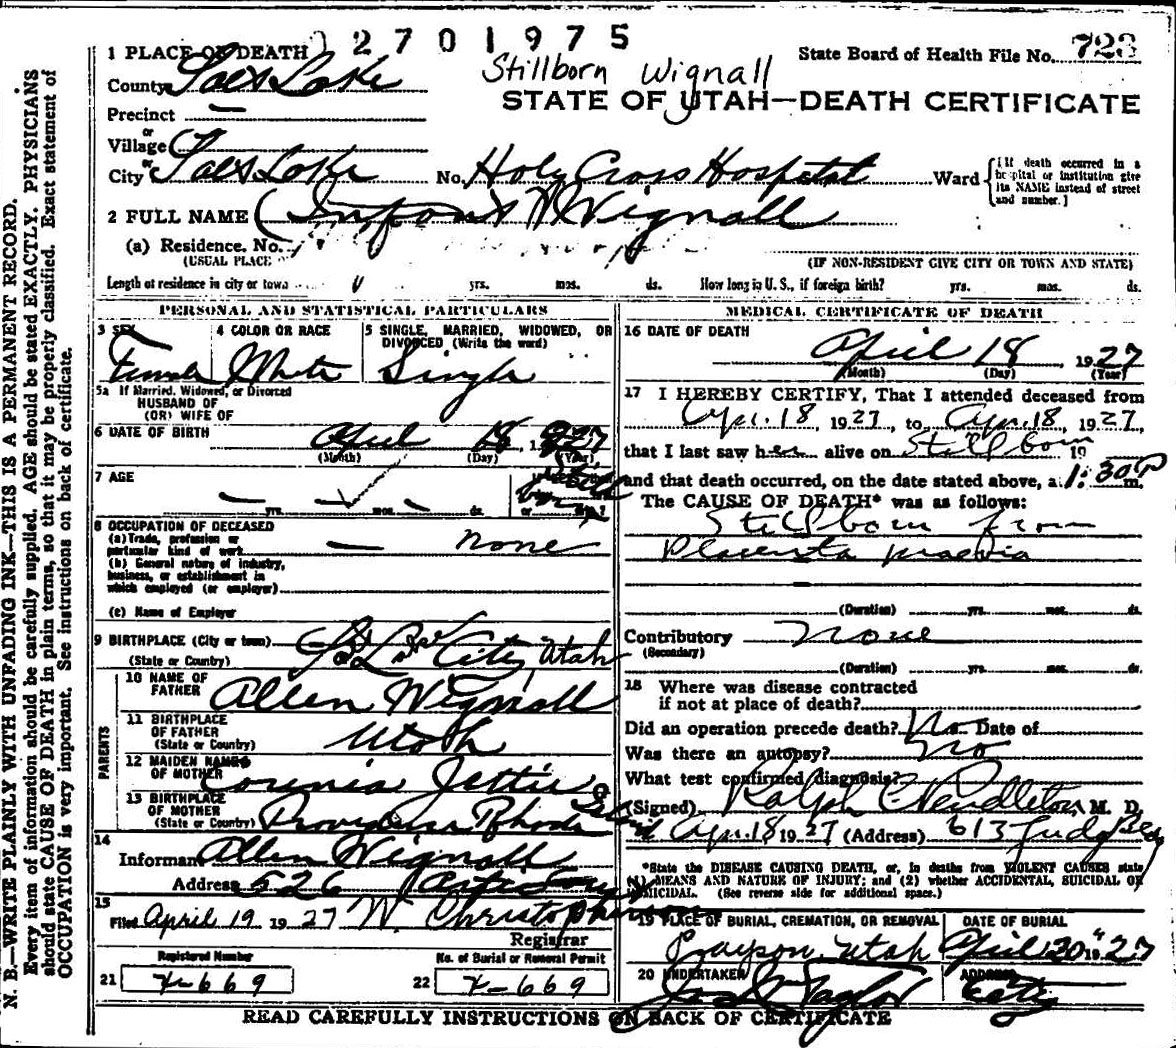 2701975
1 PLACE OF DEATH
State Board of Health File No. 723
Stillborn Wignall
County Salt Lake
STATE OF UTAH—DEATH CERTIFICATE
Precinct —
or
Village
or
City Salt Lake No. Holy Cross Hospital Ward
[If death occurred in a
hospital or institution give
its NAME instead of street
and number.]
2 FULL NAME (Infant Wignall
(a) Residence. No.
(USUAL PLACE
(IF NON-RESIDENT GIVE CITY OR TOWN AND STATE)
Length of residence in city or town yrs. mos. ds. How long in U. S., if foreign birth? yrs. mos. ds.
PERSONAL AND STATISTICAL PARTICULARS
3 SEX 4 COLOR OR RACE 5 SINGLE, MARRIED, WIDOWED, OR
DIVORCED (Write the word)
Female White Single
5a If Married, Widowed, or Divorced
HUSBAND OF
(OR) WIFE OF
6 DATE OF BIRTH April 18, 1927
(Month) (Day) (Year)
7 AGE
— — —
yrs. mos. ds. or
8 OCCUPATION OF DECEASED
(a) Trade, profession or
particular kind of work — none
(b) General nature of industry,
business, or establishment in
which employed (or employer)
(c) Name of Employer
9 BIRTHPLACE (City or town) City, Utah
(State or Country)
PARENTS
10 NAME OF
FATHER Allen Wignall
11 BIRTHPLACE
OF FATHER
(State or Country) Utah
12 MAIDEN NAME
OF MOTHER
13 BIRTHPLACE
OF MOTHER
(State or Country) Providence Rhode Island
14
Informant Allen Wignall
Address 526
15
Filed April 19 1927 W. Christopherson
Registrar
Registered Number
21 X-669
No. of Burial or Removal Permit
22 X-669
MEDICAL CERTIFICATE OF DEATH
16 DATE OF DEATH
April 18 1927
(Month) (Day) (Year)
17 I HEREBY CERTIFY, That I attended deceased from
Apr. 18, 1927, to Apr. 18, 1927,
that I last saw her alive on Stillborn 19
and that death occurred, on the date stated above, at 1:30 P m.
The CAUSE OF DEATH* was as follows:
Stillborn from
Placenta praevia
(Duration) yrs. mos. ds.
Contributory None
(Secondary)
(Duration) yrs. mos. ds.
18 Where was disease contracted
if not at place of death?
Did an operation precede death? No Date of
Was there an autopsy? No
What test confirmed diagnosis?
(Signed) Ralph C Pendleton, M. D.
Apr. 18 1927 (Address) 613 Judge Bldg
*State the DISEASE CAUSING DEATH, or, in deaths from VIOLENT CAUSES state
(1) MEANS AND NATURE OF INJURY; and (2) whether ACCIDENTAL, SUICIDAL OR
HOMICIDAL. (See reverse side for additional space.)
19 PLACE OF BURIAL, CREMATION, OR REMOVAL DATE OF BURIAL
Payson, Utah April 20" 1927
20 UNDERTAKER ADDRESS
Taylor City
READ CAREFULLY INSTRUCTIONS ON BACK OF CERTIFICATE
N. B.—WRITE PLAINLY WITH UNFADING INK—THIS IS A PERMANENT RECORD.
Every item of information should be carefully supplied. AGE should be stated EXACTLY. PHYSICIANS
should state CAUSE OF DEATH in plain terms, so that it may be properly classified. Exact statement of
OCCUPATION is very important. See instructions on back of certificate.